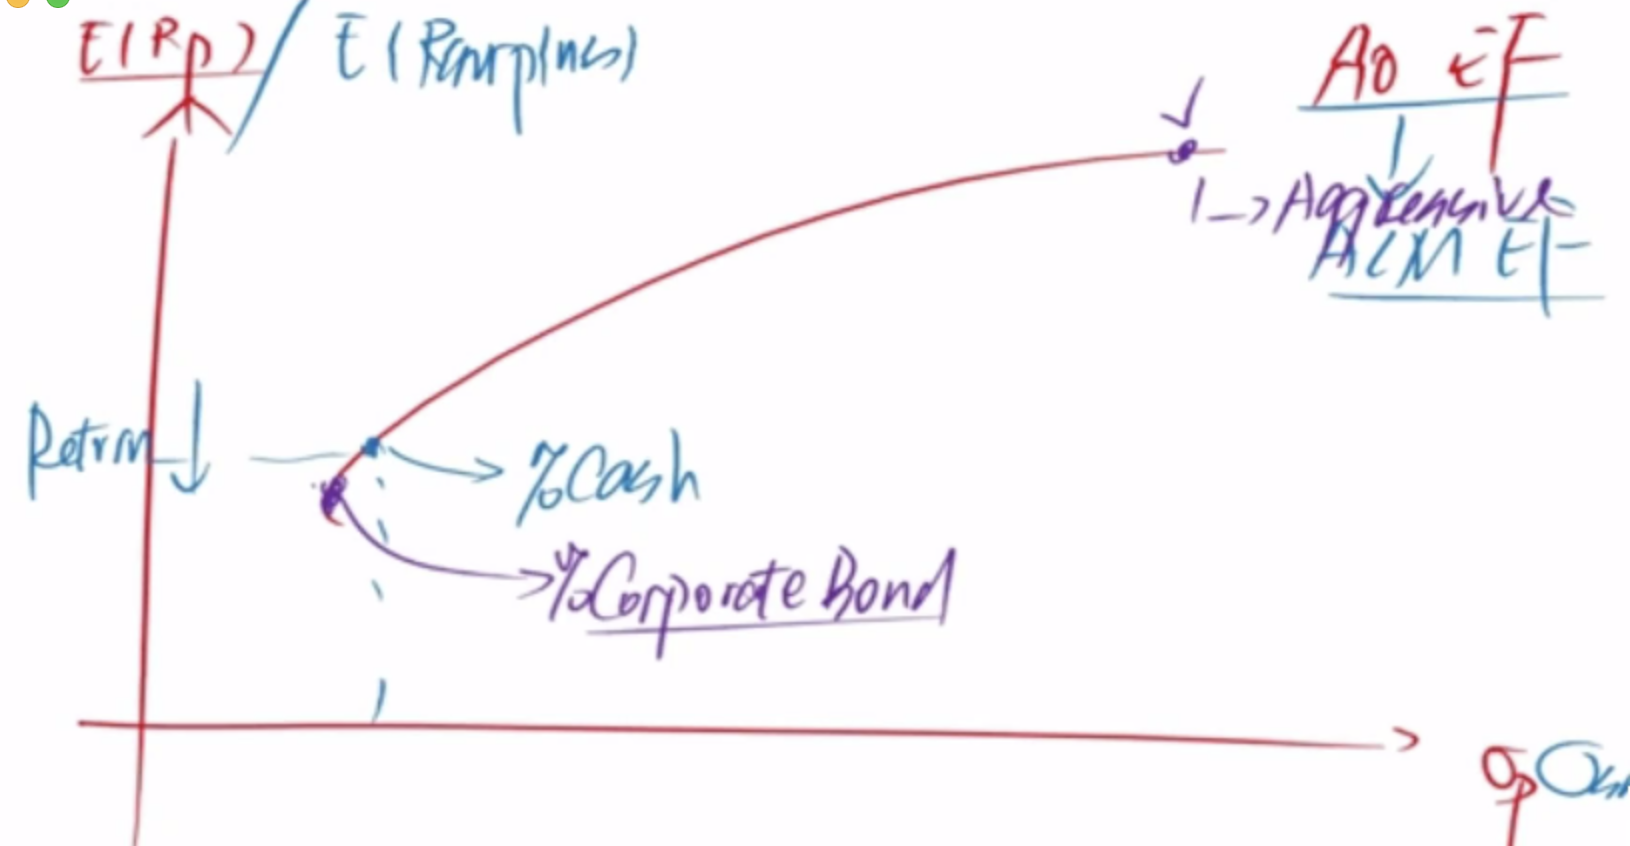 E(Rp) / E(Rsurplus)
AO EF
↓
1 -> Aggressive
ALM EF
Return ↓
%Cash
%Corporate Bond
σp